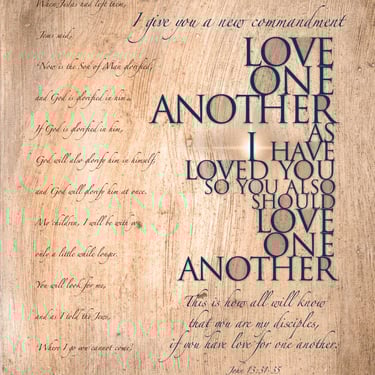 When Judas had left them,
Jesus said,
"Now is the Son of Man glorified,
and God is glorified in him.
If God is glorified in him,
God will also glorify him in himself,
and God will glorify him at once.
My children, I will be with you
only a little while longer.
You will look for me,
and as I told the Jews,
'Where I go you cannot come,'
I give you a new commandment
LOVE
ONE
ANOTHER
AS
I HAVE
LOVED YOU
SO YOU ALSO
SHOULD
LOVE
ONE
ANOTHER
This is how all will know
that you are my disciples,
if you have love for one another.
John 13:31-35